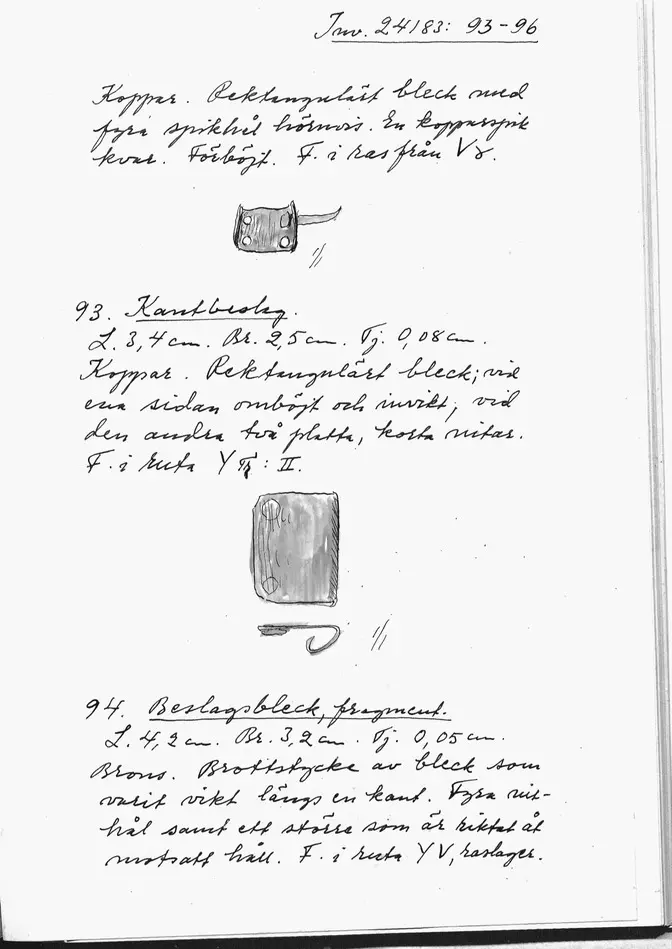 Inv. 24183: 93-96
Koppar. Rektangulärt bleck med
fyra spikhål hörnvis. En kopparspik
kvar. Förböjt. F. i ras från V
1/1
93. Kantbeslag.
L. 3,4 cm. Br. 2,5 cm. Tj. 0,08 cm.
Koppar. Rektangulärt bleck; vid
ena sidan omböjt och invikt, vid
den andra två platta, korta nitar.
F. i ruta Y : II.
1/1
94. Beslagsbleck, fragment.
L. 4,2 cm. Br. 3,2 cm. Tj. 0,05 cm.
Brons. Brottstycke av bleck som
varit vikt längs en kant. Fyra nit-
hål samt ett större som är riktat åt
motsatt håll. F. i ruta Y V, raslager.